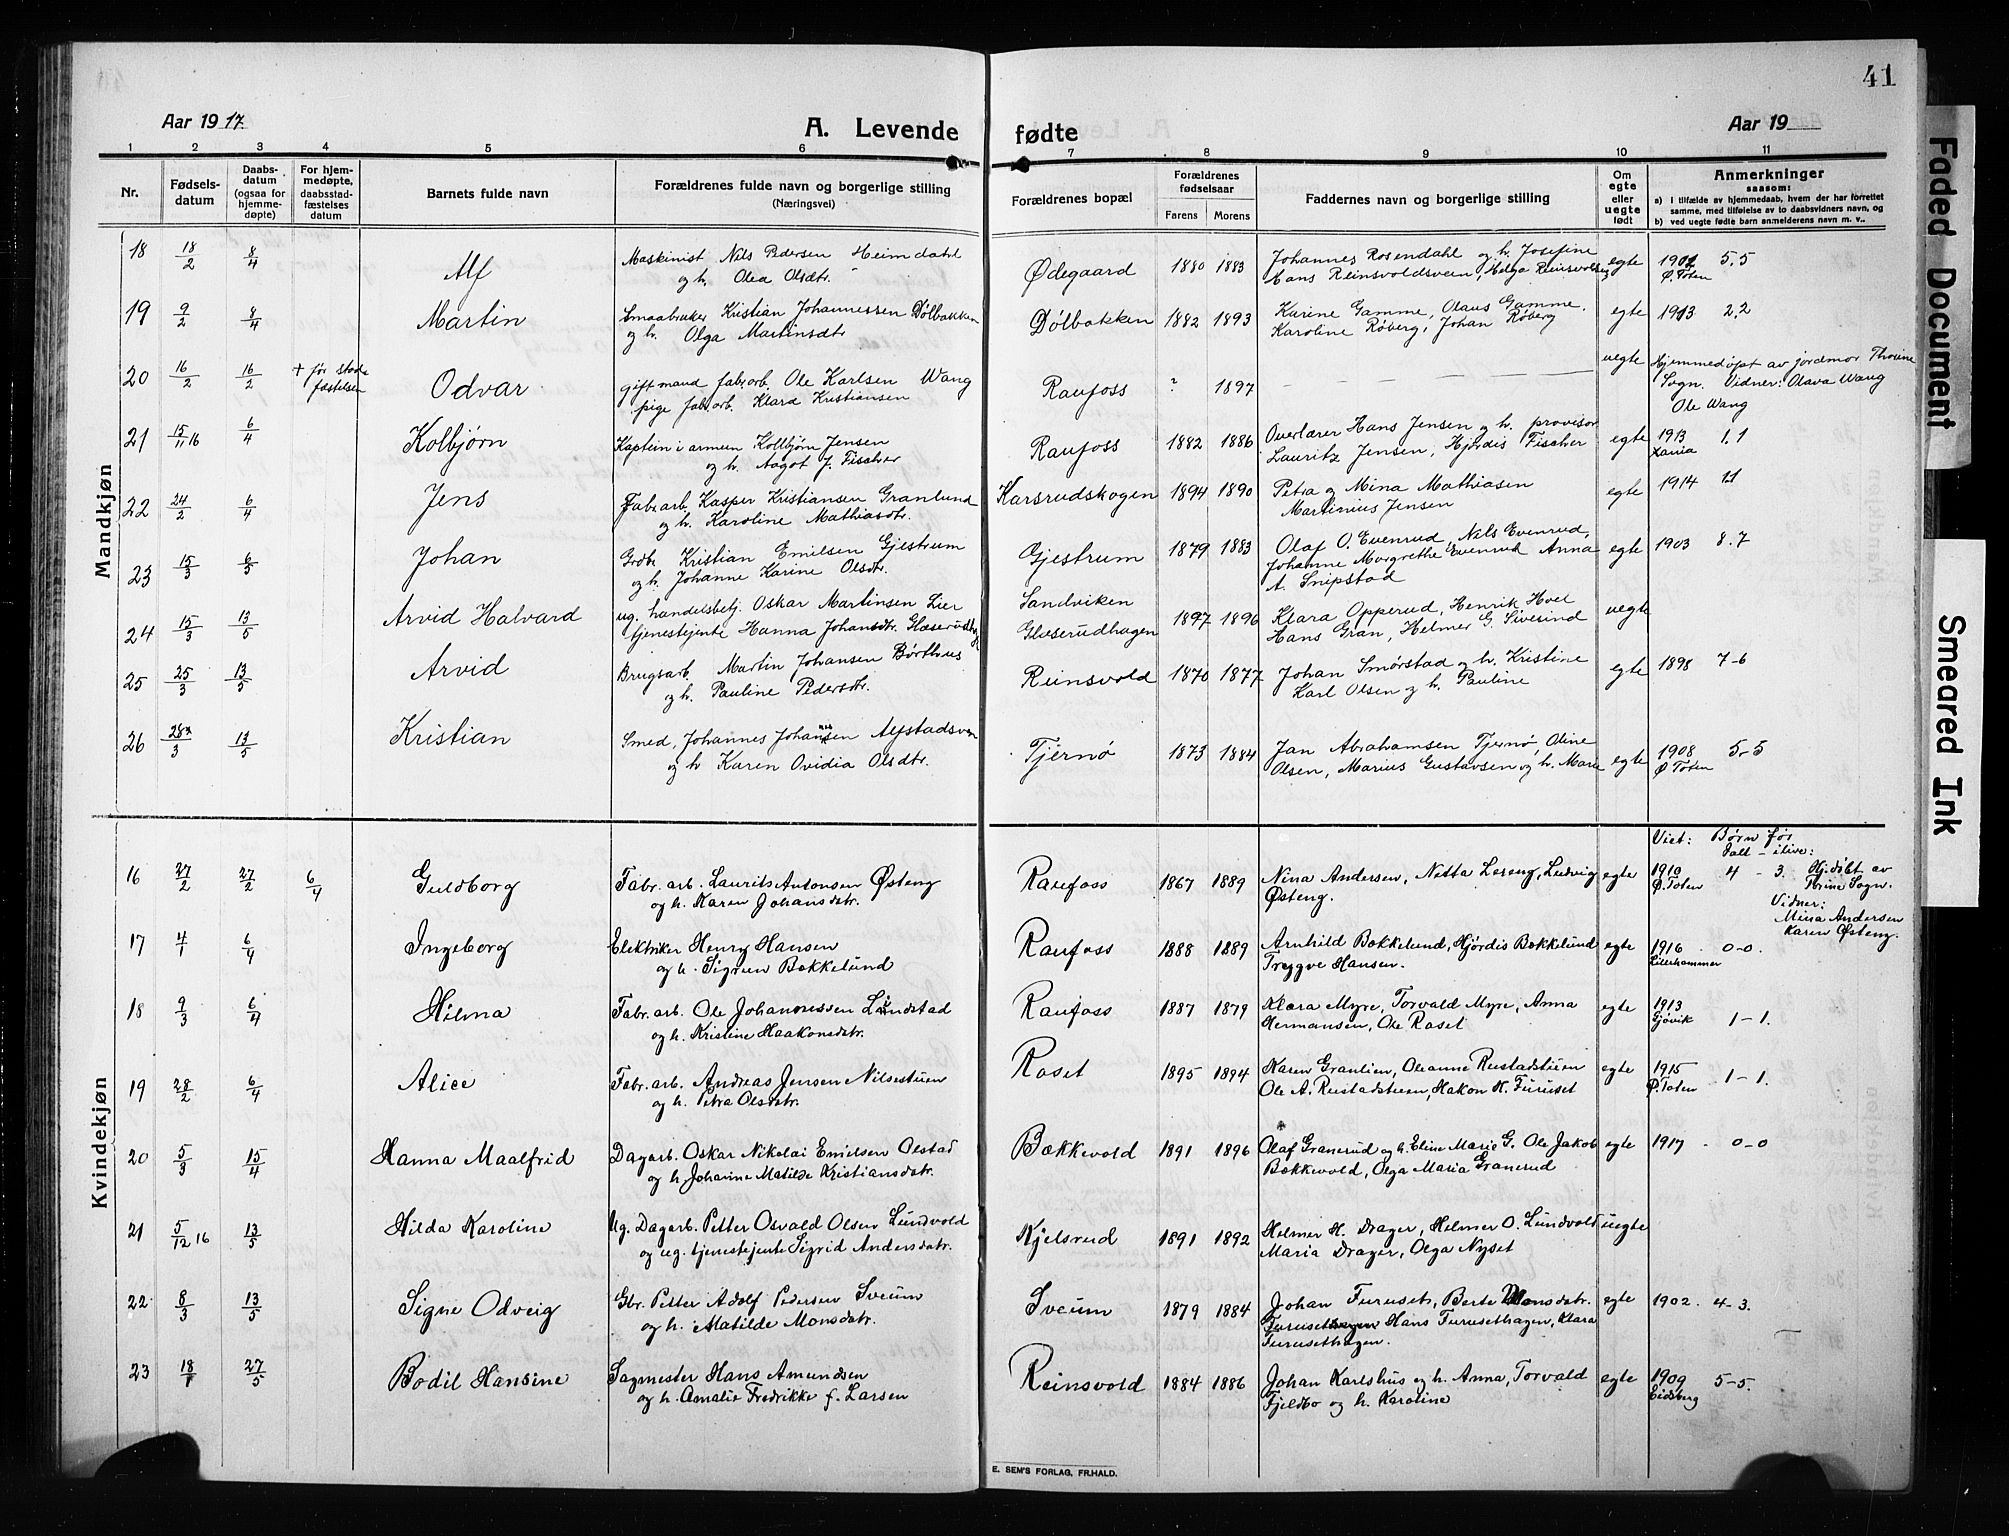 41
Aar 1917.
A. Levende
fødte
Aar 19
1 2 3 4 5 6 7 8 9 10 11
Nr.
Fødsels-
datum
Daabs-
datum
(ogsaa for
hjemme-
døpte)
For hjem-
medøpte,
daabsstad-
fæstelses
datum
Barnets fulde navn
Forældrenes fulde navn og borgerlige stilling
(Næringsvei)
Forældrenes bopæl
Forældrenes
fødselsaar
Farens Morens
Faddernes navn og borgerlige stilling
Om
egte
eller
uegte
født
Anmerkninger
saasom:
a) I tilfælde av hjemmedaab, hvem der har forrettet
samme, med tilføielse av to daabsvidners navn, og
b) ved uegte fødte barn anmelderens navn m. v..
Mandkjøn
18 18/2 8/4 Alf Maskinist Nils Pedersen Heimdahl Ødegaard 1880 1883 Johannes Rosendahl og h. Josefine egte 1901 5,5
og h. Olea Olsdtr. Hans Reinsvoldsveen, Helga Reinsvoldsv Ø. Toten
19 9/2 8/4 Martin Smaabruker Kristian Johannessen Dølbakken Dølbakken 1882 1893 Karine Gamme, Olaus Gamme. egte 1913 2,2
og h. Olga Martinsdtr Karoline Røberg, Johan Røberg
20 16/2 16/2 + før stad- Odvar gift mand fabr.arb. Ole Karlsen Wang Raufoss ? 1897 — — — uegte Hjemmedøpt av jordmor Thorine
fæstelsen pige fabr.arb. Klara Kristiansen Sogn. Vidner: Olava Wang
Ole Wang
21 15/11 16 6/4 Kolbjørn Kaptein i armeen Kolbjørn Jensen Raufoss 1882 1886 Overlærer Hans Jensen og h. provisor egte 1913 1,1
og h. Aagot f. Fischer Lauritz Jensen, Hjørdis Fischer Xania
22 24/2 6/4 Jens Fabr.arb. Kasper Kristiansen Granlund Karsrudskogen 1894 1890 Petra og Mina Mathiasen egte 1914 1,1
og h. Karoline Mathiasdtr. Martinius Jensen
23 15/3 6/5 Johan Grdbr. Kristian Emilsen Gjestrum Gjestrum 1879 1883 Olaf O. Evenrud, Nils Evenrud, egte 1903 8.7
og h. Johanne Karine Olsdtr. Johanne Margrethe Evenrud Anna
A. Snipstad
24 15/3 13/5 Arvid Halvard ug. handelsbetj. Oskar Martinsen Lier Sandviken 1897 1896 Klara Opperud, Henrik Hvel uegte
tjenestejente Hanna Johansdtr. Glæserudhg Glæserudhagen Hans Gran, Helmer G. Sivesind
25 25/3 13/5 Arvid Brugsarb. Martin Johansen Børthus Reinsvold 1870 1877 Johan Smørstad og h. Kristine egte 1898 7-6
og h. Pauline Pedersdtr. Karl Olsen og h. Pauline
26 28/3 13/5 Kristian Smed, Johannes Johansen Alfstadsveen Tjernø 1873 1884 Jan Abrahamsen Tjernø, Oline egte 1908 5-5
og h Karen Ovidia Olsdtr. Olsen, Marius Gustavsen og h. Marie Ø Toten
Kvindekjøn
Viet: Børn før
Tall - ilive:
16 27/2 27/2 6/4 Guldborg Fabr. arb. Laurits Antonsen Østeng Raufoss 1867 1889 Nina Andersen, Netta Loreng, Ludvig egte 1910 4 - 3. Hj.døbt av
og h. Karen Johansdtr. Østeng. Ø. Toten Thrine Sogn.
Vidner:
Mina Andersen
Karen Østeng.
17 4/1 6/4 Ingeborg Elektriker Henry Hansen Raufoss 1888 1889 Arnhild Bækkelund, Hjørdis Bækkelund egte 1916 . 0-0.
og h. Sigrun Bækkelund Tryggve Hansen. Lillehammer
18 9/3 6/4 Hilma Fabr. arb. Ole Johannessen Lundstad Raufoss 1887 1879 Klara Myre, Torvald Myre, Anna egte 1913
og h. Kristine Haakonsdtr. Hermansen, Ole Raset Gjøvik 1-1.
19 28/2 6/4 Alice Fabr. arb. Andreas Jensen Nilsestuen Roset 1895 1894 Karen Granlien, Oleanne Rustadstuen egte 1915 1-1.
og h. Petra Olsdatr. Ole A. Rustadstuen, Hakon K. Furuset Ø. Toten
20 5/3 15/4 Hanna Maalfrid Dagarb. Oskar Nikolai Emilsen Olstad Bækkevold 1891 1896 Olaf Granerud og h. Eline Marie G. Ole Jakob egte 1917 . 0-0
og h. Johanne Matilde Kristiansdatr. Bækkevold, Olga Maria Granerud
21 5/12 16 13/5 Hilda Karoline Ug. Dagarb. Petter Osvald Olsen Lundvold Kjelsrud 1891 1892 Helmer H. Drager, Helmer O. Lundvold uegte
og ug. tjenestejente Sigrid Andersdatr. Maria Drager, Olga Nyset
22 8/3 13/5 Signe Odveig Gbr. Petter Adolf Pedersen Sveum Sveum 1879 1884 Johan Furuset, Berte Monsdatr. egte 1902. 4-3.
og h. Matilde Monsdatr. Furusethagen Hans Furusethagen, Klara
Furusethagen.
23 18/1 27/5 Bodil Hansine Sagmester Hans Amundsen Reinsvold 1884 1886 Johan Karlshus og h. Anna, Torvald egte 1909 5-5.
og h. Amalie Fredrikke f. Larsen Fjeldbo og h. Karoline Eidsberg
E. SEM'S FORLAG, FR.HALD.
Faded Document
Smeared Ink